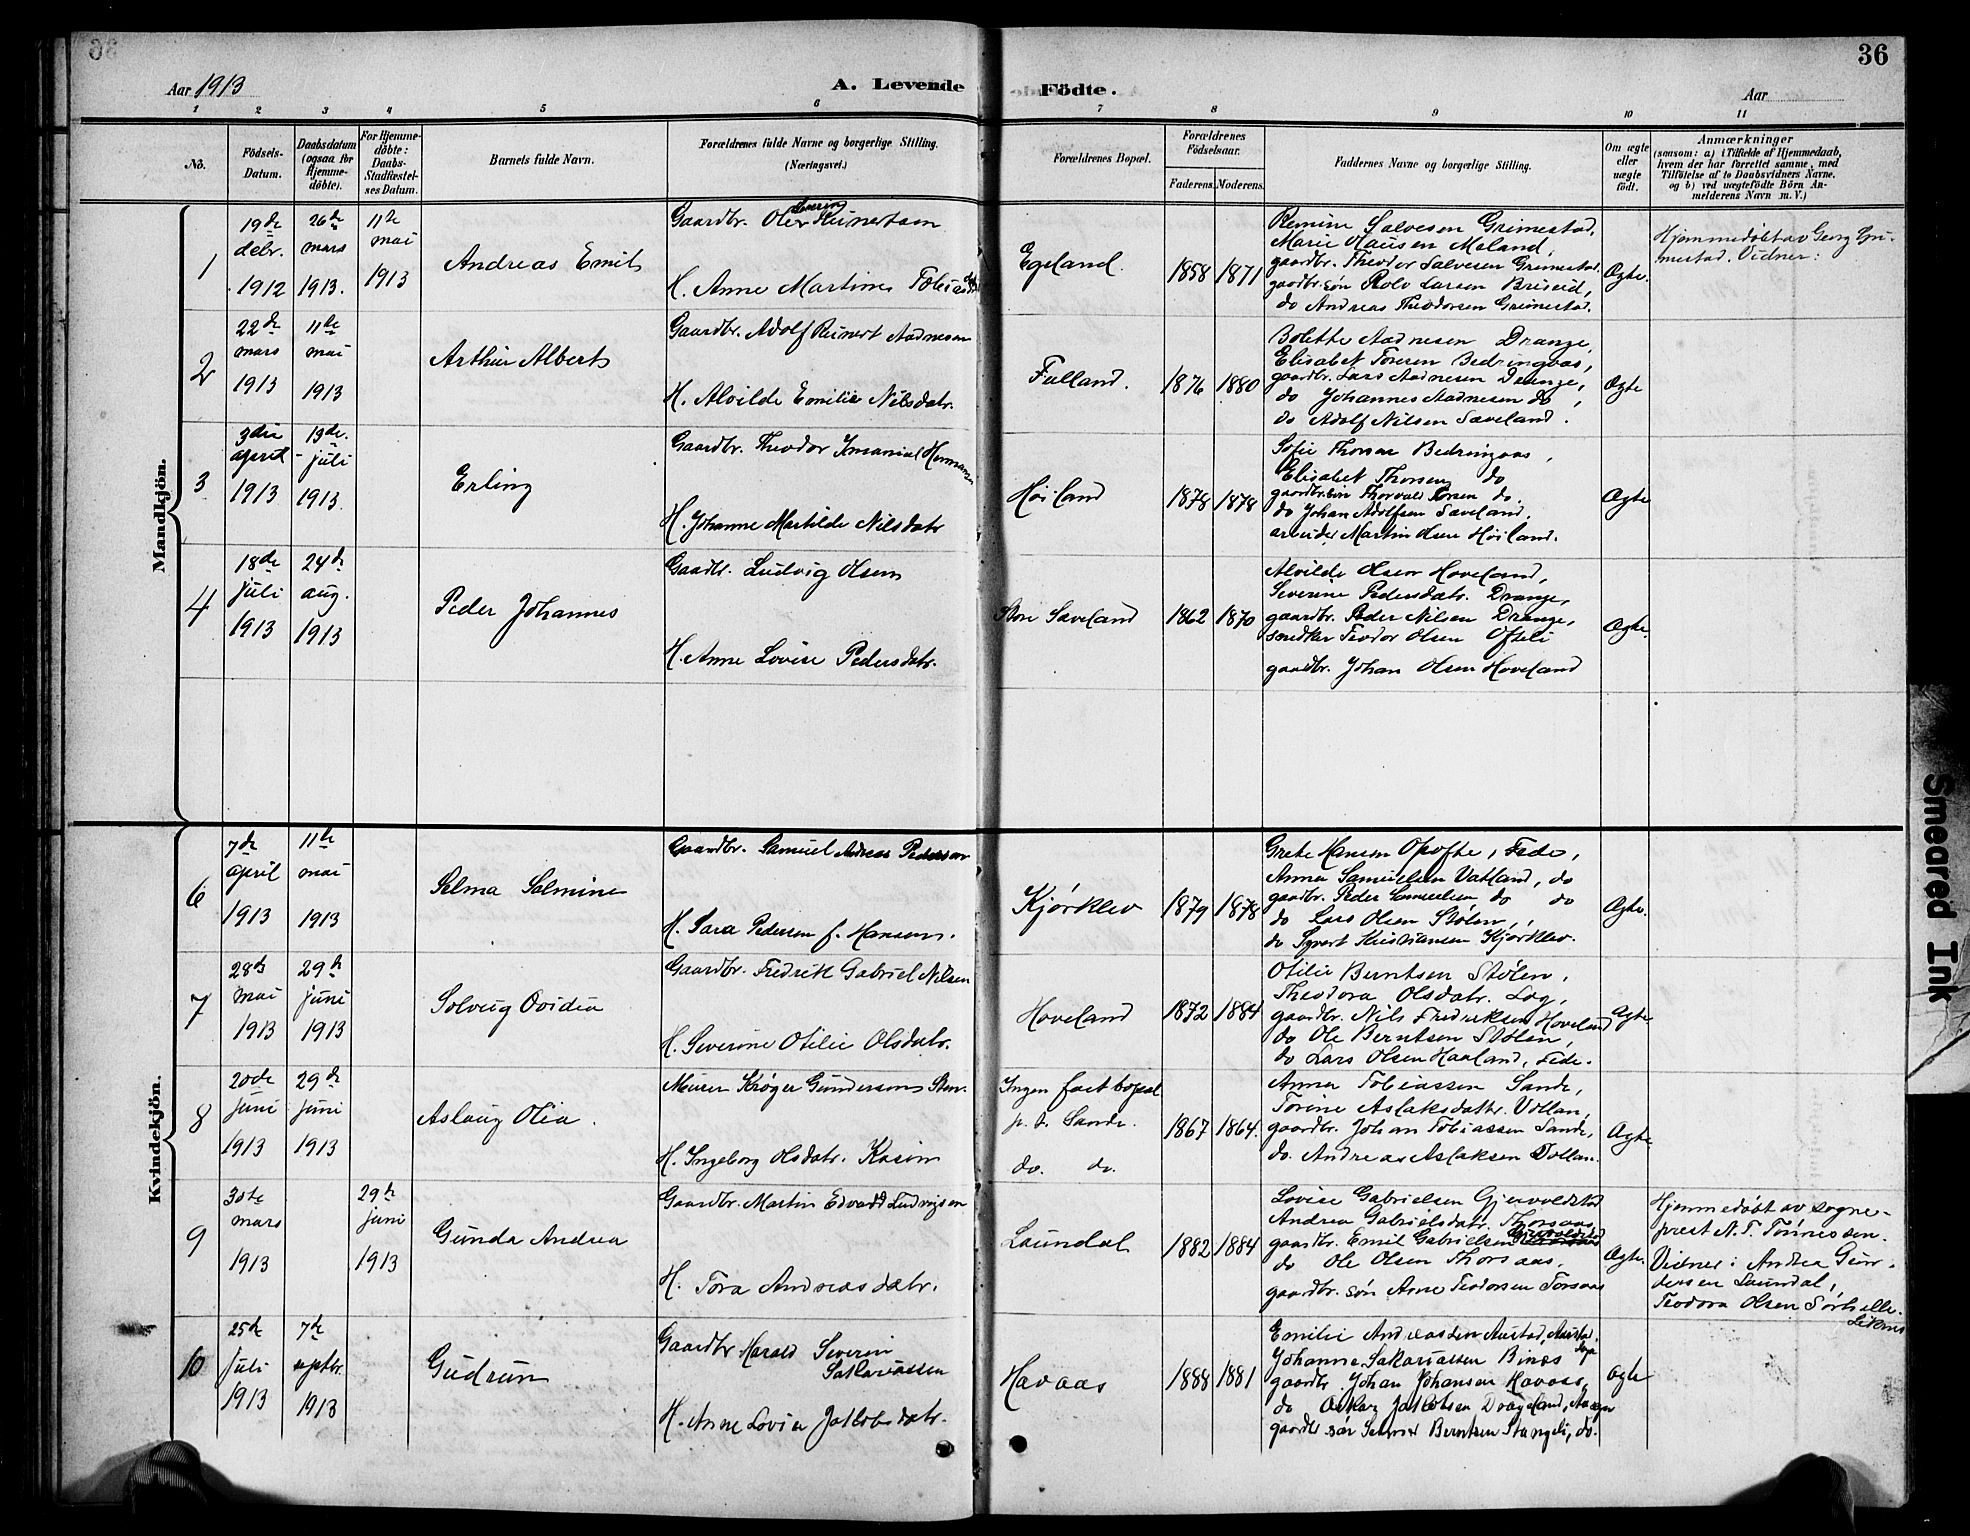 36
Aar 1913
A. Levende Födte.
Aar
1 2 3 4 5 6 7 8 9 10 11
No.
Födsels-
Datum.
Daabsdatum
(ogsaa for
Hjemme-
döbte).
For Hjemme-
döbte:
Daabs-
Stadfæstel-
ses Datum.
Barnets fulde Navn.
Forældrenes fulde Navne og borgerlige Stilling.
(Næringsvei.)
Forældrenes Bopæl.
Forældrenes
Födselsaar.
Faderens. Moderens.
Faddernes Navne og borgerlige Stilling.
Om ægte
eller
uægte
födt.
Anmærkninger
(saasom: a) i Tilfælde af Hjemmedaab,
hvem der har forrettet samme, med
Tilföielse af to Daabsvidners Navne.
og b) ved uægtefödte Börn An-
melderens Navn m. V.)
Mandkjön.
1
19de
debr.
1912
26de
mars
1913.
11te
mai
1913
Andreas Emil
Gaardbr. Ole Severin Reinertsen
H. Anne Martine Tobiasdtr
Egeland.
1858 1871
Remine Salvesen Grimestad,
Marie Clausen Meland,
gaardbr. Theodor Salvesen Grimestad.
gaardbr.søn Rolv Larsen Briseid,
do Andreas Theodorsen Grimestad.
Ægte.
Hjemmedøbt av Georg Gri-
mestad. Vidner:
2
22de
mars
1913
11te
mai
1913
Arthur Albert
Gaardbr. Adolf Reinert Aadnesen
H. Alvilde Emilie Nilsdatr.
Fulland.
1876 1880
Bolette Aadnesen Drange,
Elisabet Toresen Bedringaas,
gaardbr. Lars Aadnesen Drange,
do Johannes Aadnesen do,
do Adolf Nilsen Sæveland.
Ægte
3
3die
april
1913
13de.
juli
1913.
Erling
Gaardbr. Theodor Imanuel Hermansen
H. Johanne Martilde Nilsdatr
Høiland
1878 1878
Sofie Thorsen Bedringaas,
Elisabet Thorsen do
gaardbr.søn Thorvald Torsen do.
do Johan Adolfsen Sæveland.
arbeider Martin Olsen Høiland.
Ægte
4
18de
juli
1913
24de
aug.
1913
Peder Johannes
Gaardb. Ludvig Olsen
H. Anne Lovise Pedersdatr.
Store Sæveland
1862 1870
Alvilde Olsen Hoveland,
Severine Pedersdatr. Drange,
gaardbr. Peder Nilsen Drange,
Teodor Olsen Ofteli
gaardbr. Johan Olsen Hoveland
Ægte.
Kvindekjön.
6
7de
april
1913
11te
mai
1913
Selma Salmine
Gaardbr. Samuel Andreas Pedersen
H. Sara Pedersen f. Hansen.
Kjørklev
1879 1878
Grete Hansen Opofte, Fede,
Anna Samuelsen Vatland, do
gaardbr. Peder Samuelsen do do
do Lars Olsen Stølen,
do Syvert Kristiansen Kjørklev.
Ægte.
7
28de
mai
1913
29de
juni
1913
Solveig Ovidia
Gaardbr. Fredrik Gabriel Nilsen
H. Severine Otilie Olsdatr.
Hoveland
1872 1884
Otilie Berntsen Stølen,
Theodora Olsdatr. Log,
gaardbr. Nils Fredriksen Hoveland
do Ole Berntsen Stølen,
do Lars Olsen Haaland, Fede.
Ægte
8
20de
juni
1913
29de
juni
1913
Aslaug Olia.
Murer Krøger Gundersons Sten.
H. Ingeborg Olsdatr. Kasin
Ingen fast bopæl
p. t. Sande.
do. do.
1867 1864.
Anna Tobiassen Sande,
Torine Aslaksdattr. Vollan,
gaardbr. Johan Tobiassen Sande,
do. Andreas Aslaksen Vollan.
Ægte
9
30te
mars
1913
29de
juni
1913
Gunda Andrea
Gaardbr. Martin Edvard Ludvigsen
H. Tora Andreasdatr.
Laundal
1882 1884
Lovise Gabrielsen Gjervoldstad
Andrea Gabrielsdatr. Thorsaas
gaardbr. Emil Gabrielsen Gjervoldstad
do Ole Olsen Thorsaas.
gaardbr. søn Arne Teodorsen Torsaas
Ægte.
Hjemmedøbt av sogne-
prest N. T. Tönnessen.
Vidner: Andrea Gun-
dersen Laundal,
Teodora Olsen Sørhelle.
Liknes
10
25de
juli
1913
7de
septbr.
1913
Gudrun
Gaardbr Harald Severin
Sakariassen
H. Anne Lovise Jakobsdatr.
Havaas
1888 1881
Emilie Andreassen Austad,
Johanne Sakariassen Binas
gaardbr. Johan Johansen Havaas,
do Oskar Jakobsen Drageland,
gaardbr søn Berntsen Stangeli, do.
Ægte
Smeared Ink